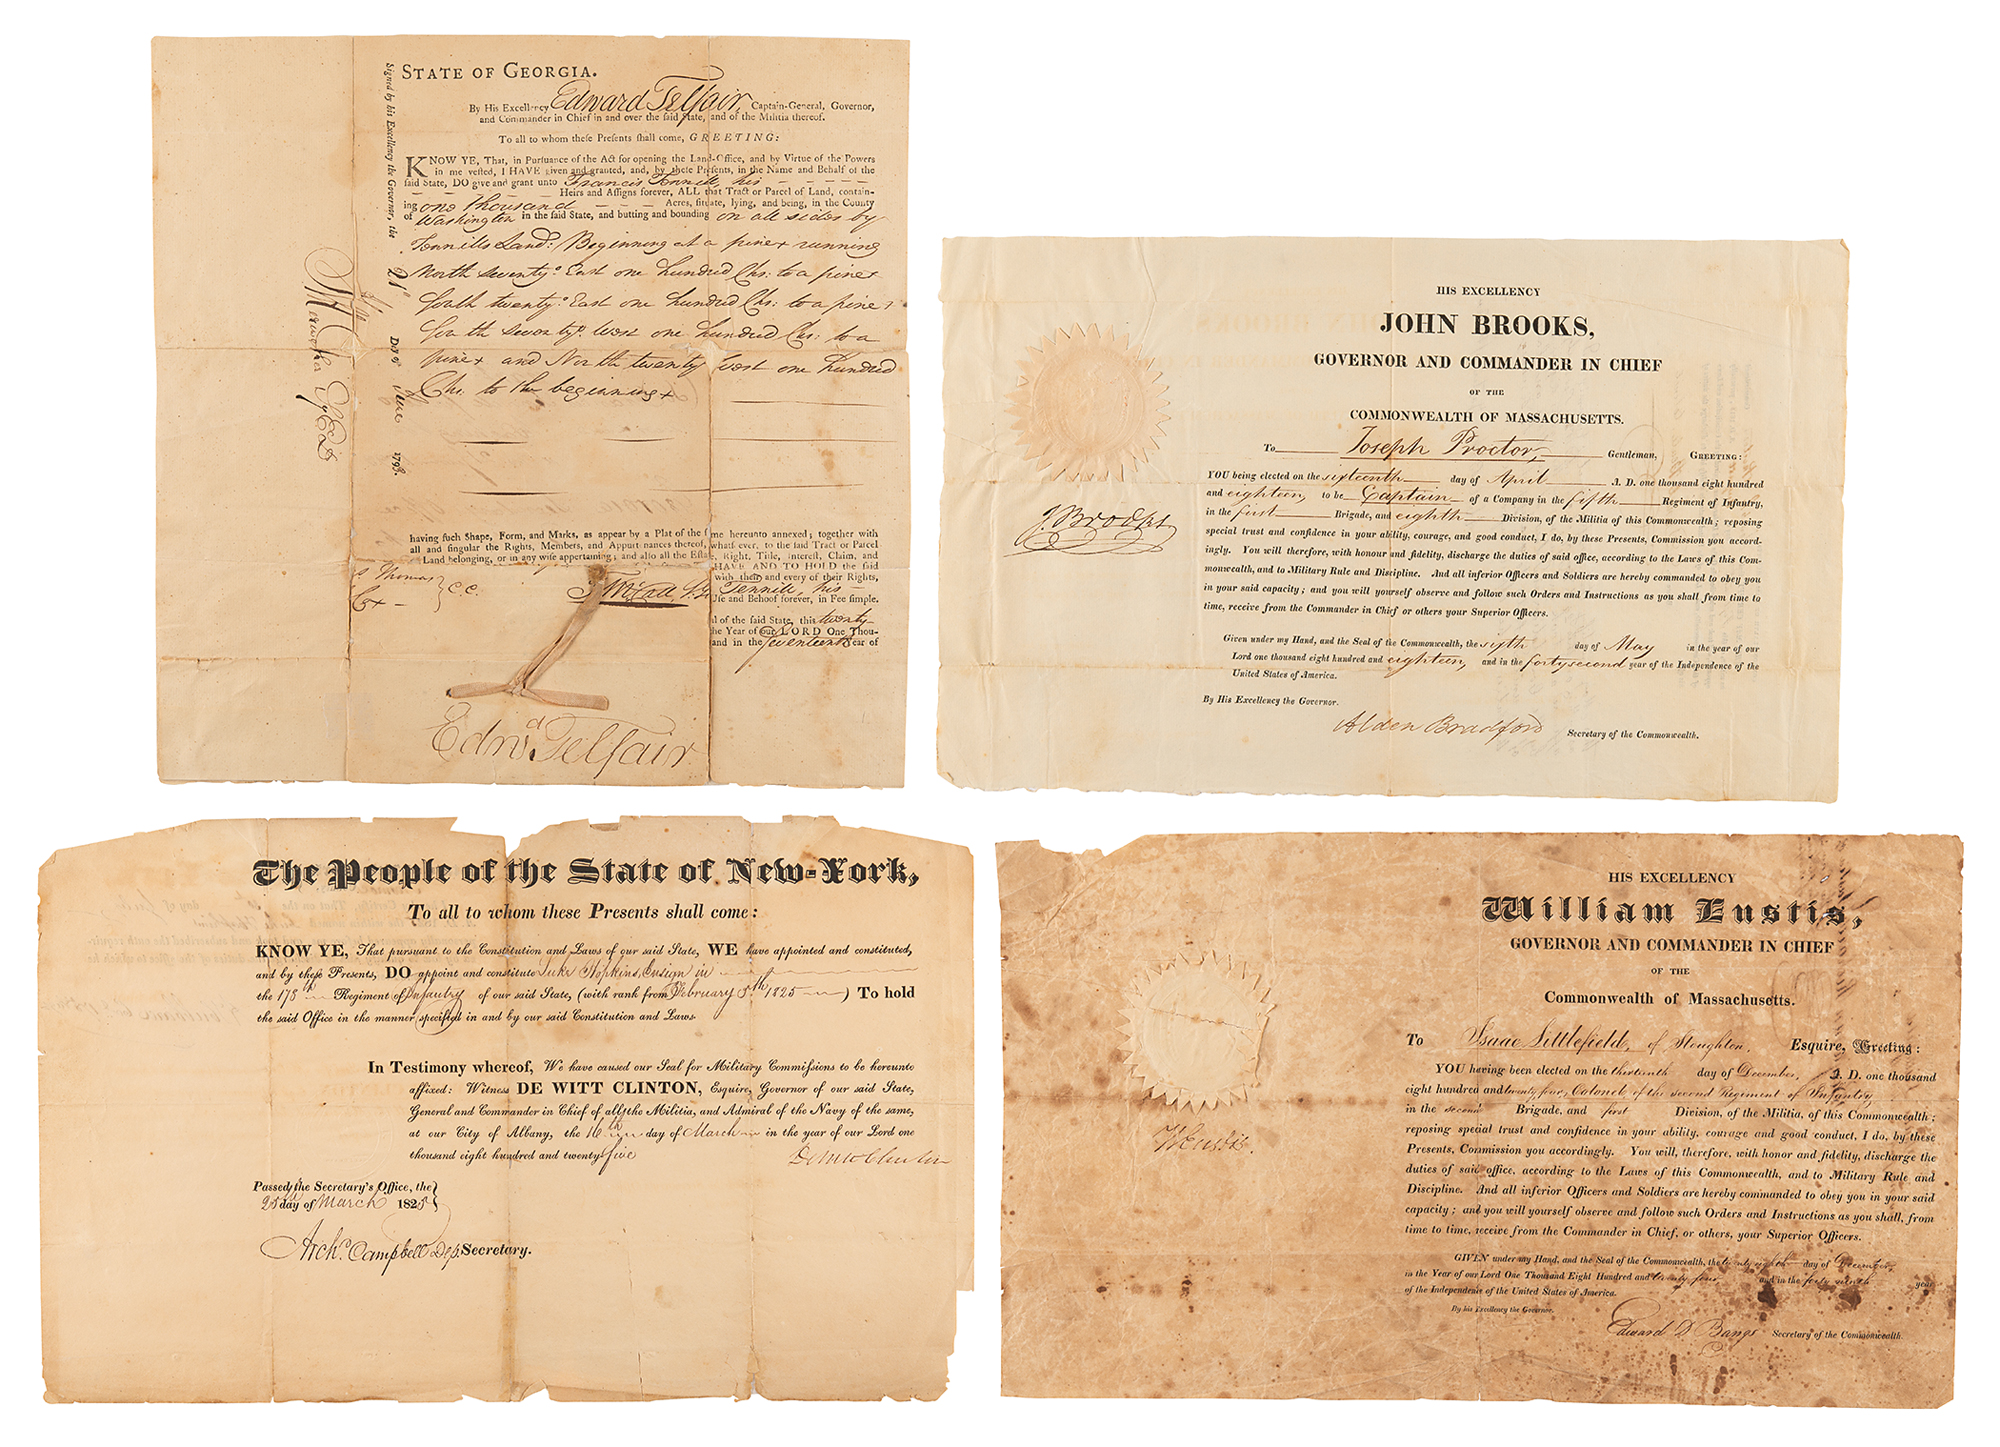 STATE OF GEORGIA.
By His Excellency Edward Telfair, Captain-General, Governor,
and Commander in Chief in and over the said State, and of the Militia thereof.
To all to whom these Presents shall come, GREETING:
KNOW YE, That, in Pursuance of the Act for opening the Land-Office, and by Virtue of the Powers
in me vested, I HAVE given and granted, and, by these Presents, in the Name and Behalf of the
said State, DO give and grant unto Francis Tennill, his
Heirs and Assigns forever, ALL that Tract or Parcel of Land, contain-
ing one thousand Acres, situate, lying, and being, in the County
of Washington in the said State, and butting and bounding on all sides by
Tennills Land: Beginning at a pine x running
North seventy° East one hundred Chs: to a pine x
South twenty° East one hundred Chs: to a pine x
South seventy° West one hundred Chs: to a
pine x and North twenty West one hundred
Chs: to the beginning x
having such Shape, Form, and Marks, as appear by a Plat of the same hereunto annexed; together with
all and singular the Rights, Members, and Appurtenances thereof, whatsoever, to the said Tract or Parcel
Land belonging, or in any wise appertaining; and also all the Estate, Right, Title, Interest, Claim, and
HAVE AND TO HOLD the said
with them and every of their Rights,
Tennill, his
Use and Behoof forever, in Fee simple.
l of the said State, this twenty
he Year of our LORD One Thou-
and in the seventeenth Year of
s Thomas } C.C.
Edwd. Telfair
Signed by his Excellency the Governor, the
Day of June 1793.
HIS EXCELLENCY
JOHN BROOKS,
GOVERNOR AND COMMANDER IN CHIEF
OF THE
COMMONWEALTH OF MASSACHUSETTS.
To Joseph Proctor, Gentleman, GREETING:
YOU being elected on the sixteenth day of April A. D. one thousand eight hundred
and eighteen, to be Captain of a Company in the fifth Regiment of Infantry,
in the first Brigade, and eighth Division, of the Militia of this Commonwealth; reposing
special trust and confidence in your ability, courage, and good conduct, I do, by these Presents, Commission you accord-
ingly. You will therefore, with honour and fidelity, discharge the duties of said office, according to the Laws of this Com-
monwealth, and to Military Rule and Discipline. And all inferior Officers and Soldiers are hereby commanded to obey you
in your said capacity; and you will yourself observe and follow such Orders and Instructions as you shall from time to
time, receive from the Commander in Chief or others your Superior Officers.
Given under my Hand, and the Seal of the Commonwealth, the sixth day of May in the year of our
Lord one thousand eight hundred and eighteen, and in the forty second year of the Independence of the
United States of America.
By His Excellency the Governor.
Alden Bradford Secretary of the Commonwealth.
J. Brooks
The People of the State of New-York,
To all to whom these Presents shall come:
KNOW YE, That pursuant to the Constitution and Laws of our said State, WE have appointed and constituted,
and by these Presents, DO appoint and constitute Luke Hopkins, Ensign in
the 178th Regiment of Infantry of our said State, (with rank from February 5th 1825) To hold
the said Office in the manner specified in and by our said Constitution and Laws.
In Testimony whereof, We have caused our Seal for Military Commissions to be hereunto
affixed: Witness DE WITT CLINTON, Esquire, Governor of our said State,
General and Commander in Chief of all the Militia, and Admiral of the Navy of the same,
at our City of Albany, the 16th day of March in the year of our Lord one
thousand eight hundred and twenty five
DeWitt Clinton
Passed the Secretary's Office, the }
25th day of March 1825 }
Archd. Campbell Dep. Secretary.
HIS EXCELLENCY
William Eustis,
GOVERNOR AND COMMANDER IN CHIEF
OF THE
Commonwealth of Massachusetts.
To Isaac Littlefield, of Stoughton, Esquire, Greeting:
YOU having been elected on the thirteenth day of December, A. D. one thousand
eight hundred and twenty four, Colonel of the second Regiment of Infantry
in the second Brigade, and first Division, of the Militia, of this Commonwealth;
reposing special trust and confidence in your ability, courage and good conduct, I do, by these
Presents, Commission you accordingly. You will, therefore, with honor and fidelity, discharge the
duties of said office, according to the Laws of this Commonwealth, and to Military Rule and
Discipline. And all inferior Officers and Soldiers are hereby commanded to obey you in your said
capacity; and you will yourself observe and follow such Orders and Instructions as you shall, from
time to time, receive from the Commander in Chief, or others, your Superior Officers.
GIVEN under my Hand, and the Seal of the Commonwealth, the twenty eighth day of December,
in the Year of our Lord One Thousand Eight Hundred and twenty four, and in the forty ninth year
of the Independence of the United States of America.
By his Excellency the Governor.
Edward D Bangs Secretary of the Commonwealth.
W Eustis.